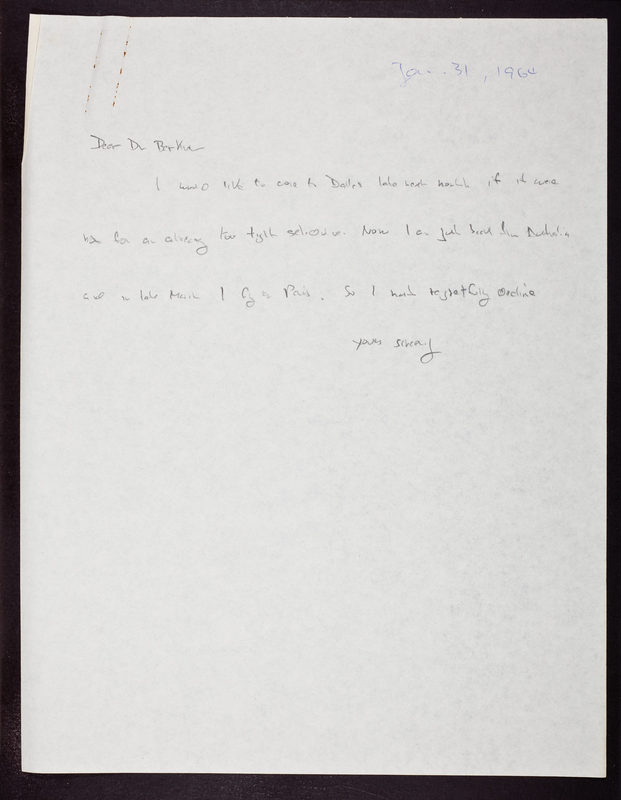 Jan. 31, 1964
Dear Dr Berkner
I would like to come to Dallas late next month if it were
not for an already too tight schedule. Now I am just back from Australia
and in late March I fly to Paris. So I must regretfully decline
yours sincerely